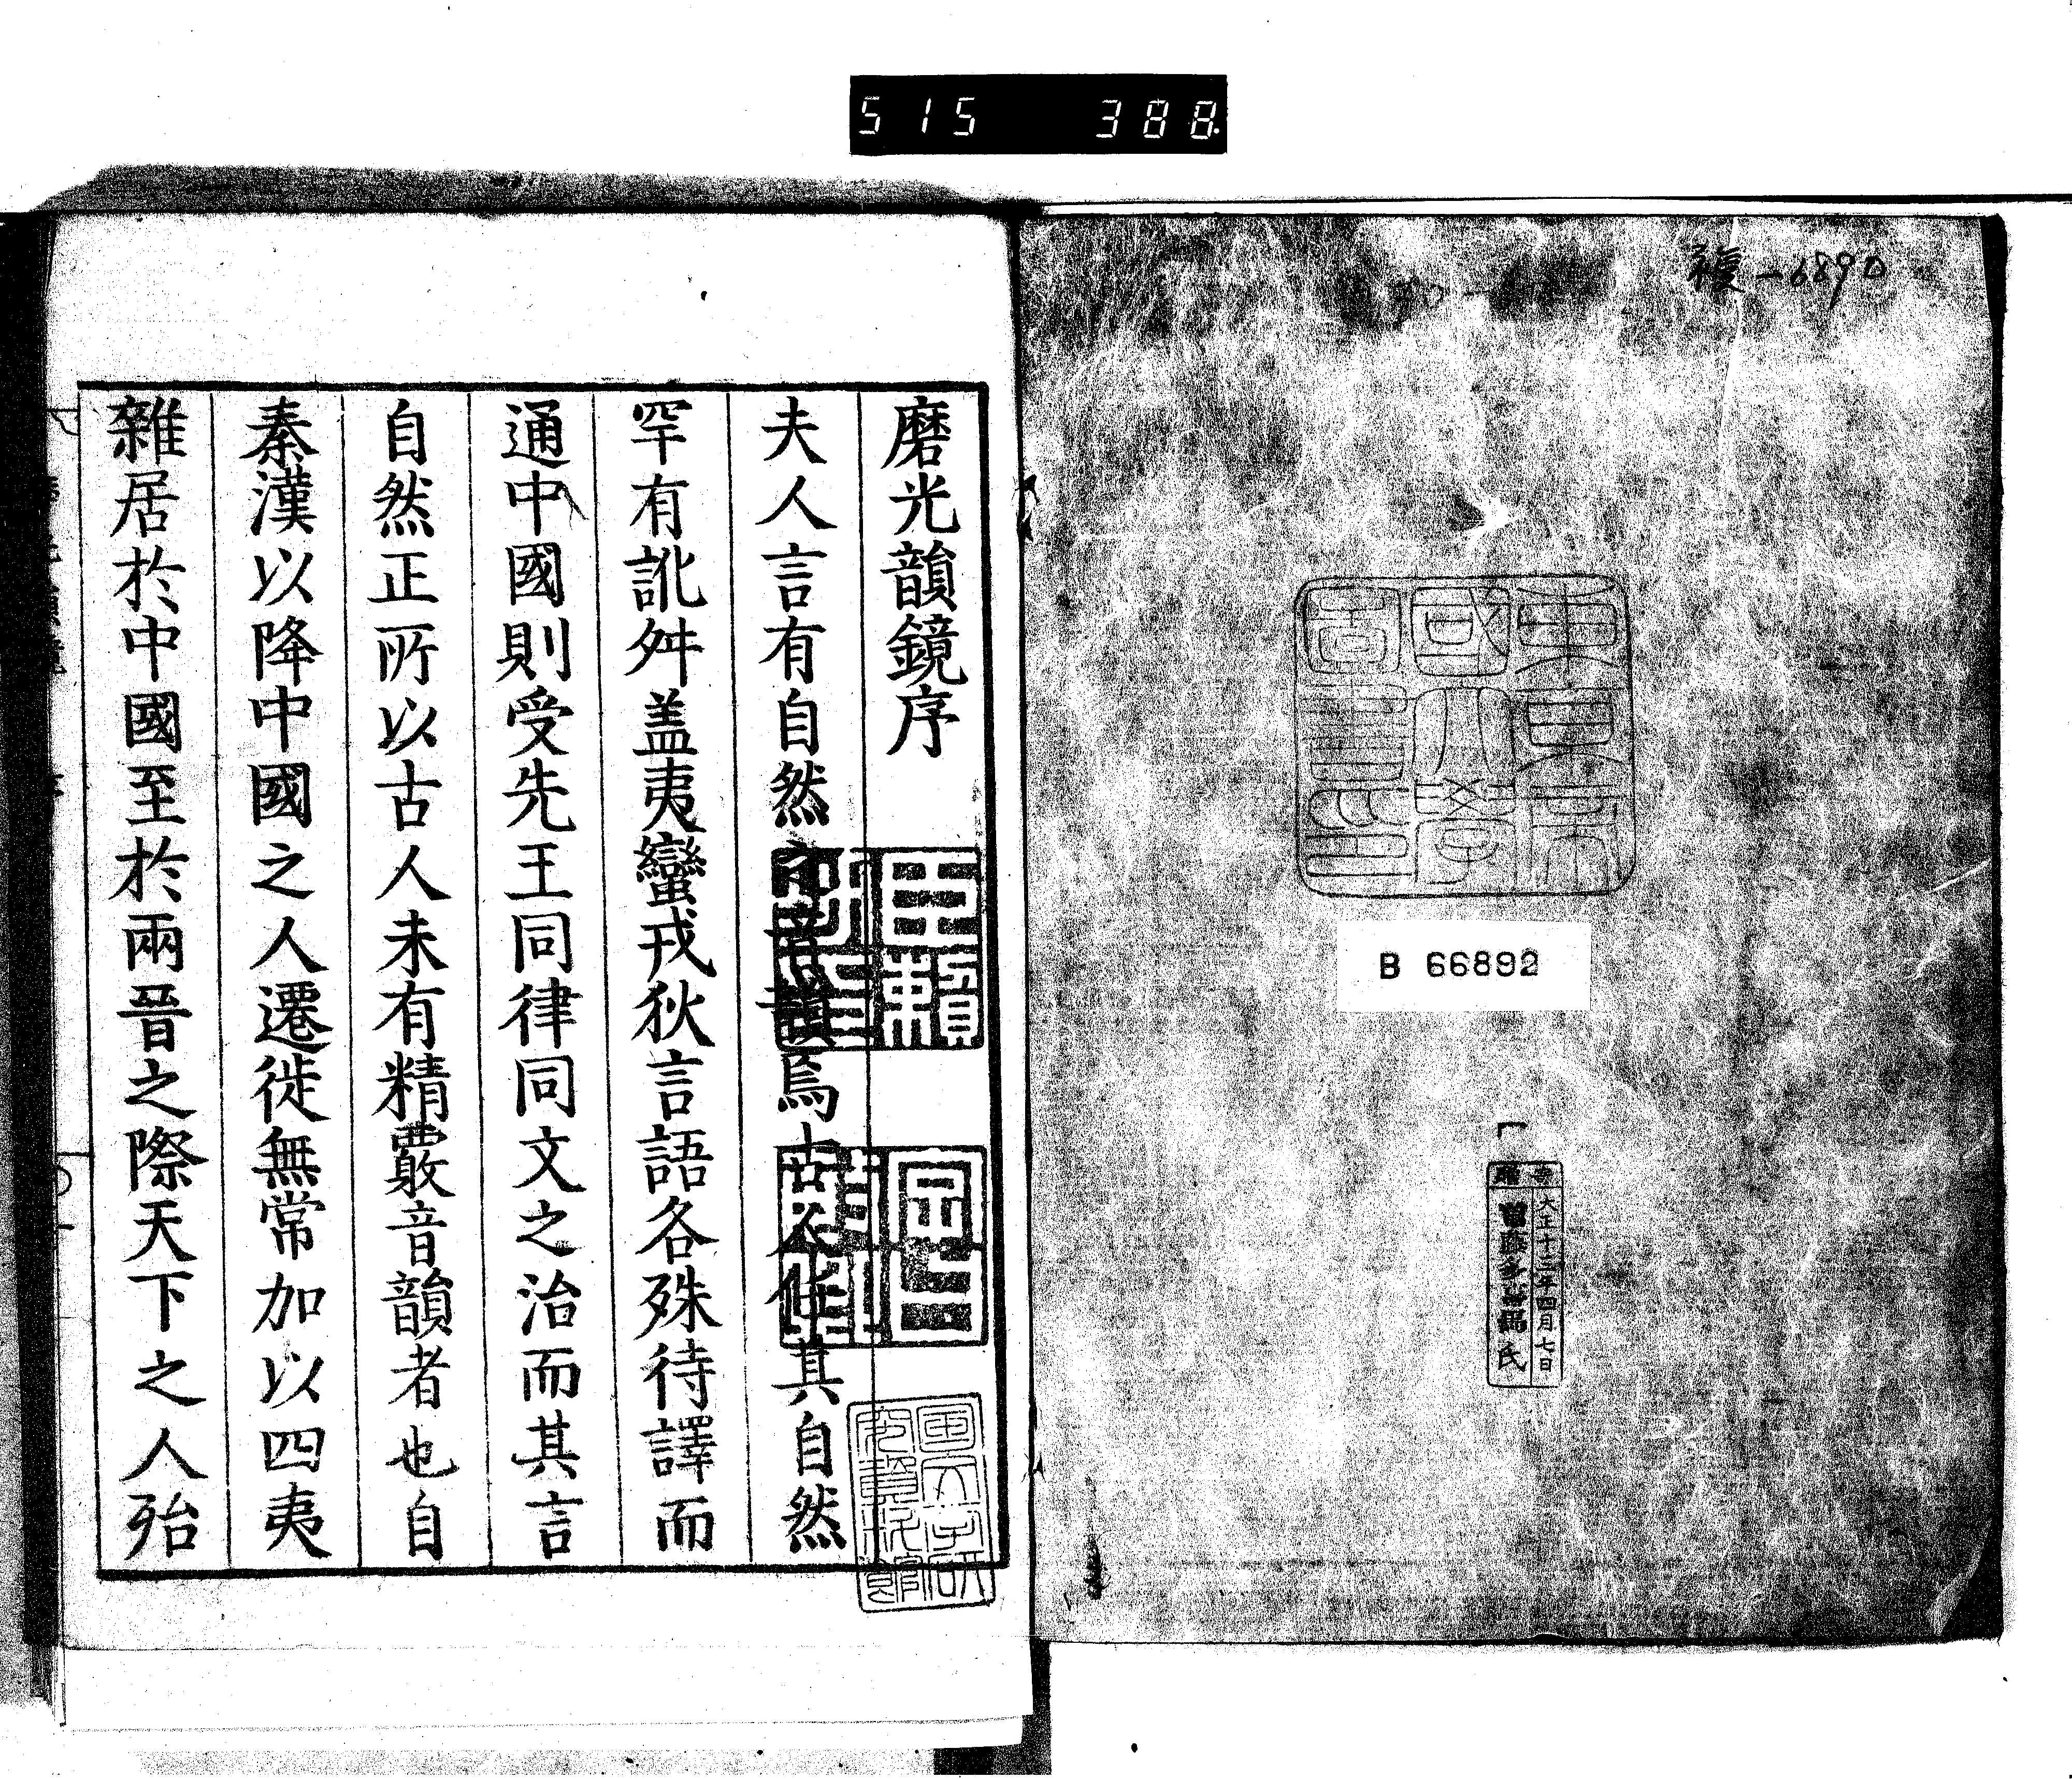 515 388
複-6890
東京帝國大學圖書印
B 66892
寄贈
大正十三年四月七日
氏
磨光韻鏡序
夫人言有自然之音韻焉古人任其自然
罕有訛舛盖夷蠻戎狄言語各殊待譯而
通中國則受先王同律同文之治而其言
自然正所以古人未有精覈音韻者也自
秦漢以降中國之人遷徙無常加以四夷
雜居於中國至於兩晉之際天下之人殆